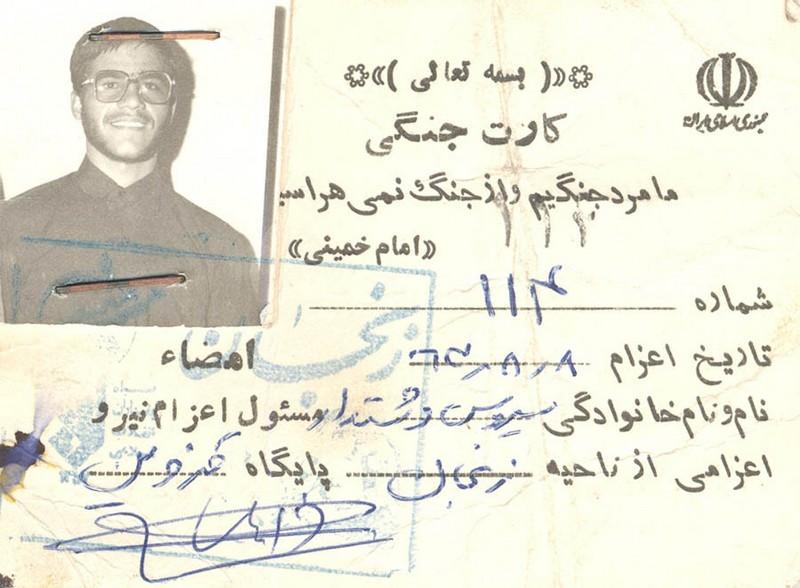 «( بسمه تعالی )»
جمهوری اسلامی ایران
کارت جنگی
ما مرد جنگیم و از جنگ نمی هراسیم
«امام خمینی»
شماره ۱۱۴
تاریخ اعزام ۶۴,۸,۸ امضاء
نام و نام خانوادگی سیروس مسئول اعزام نیرو
اعزامی از ناحیه زنجان پایگاه
زنجان